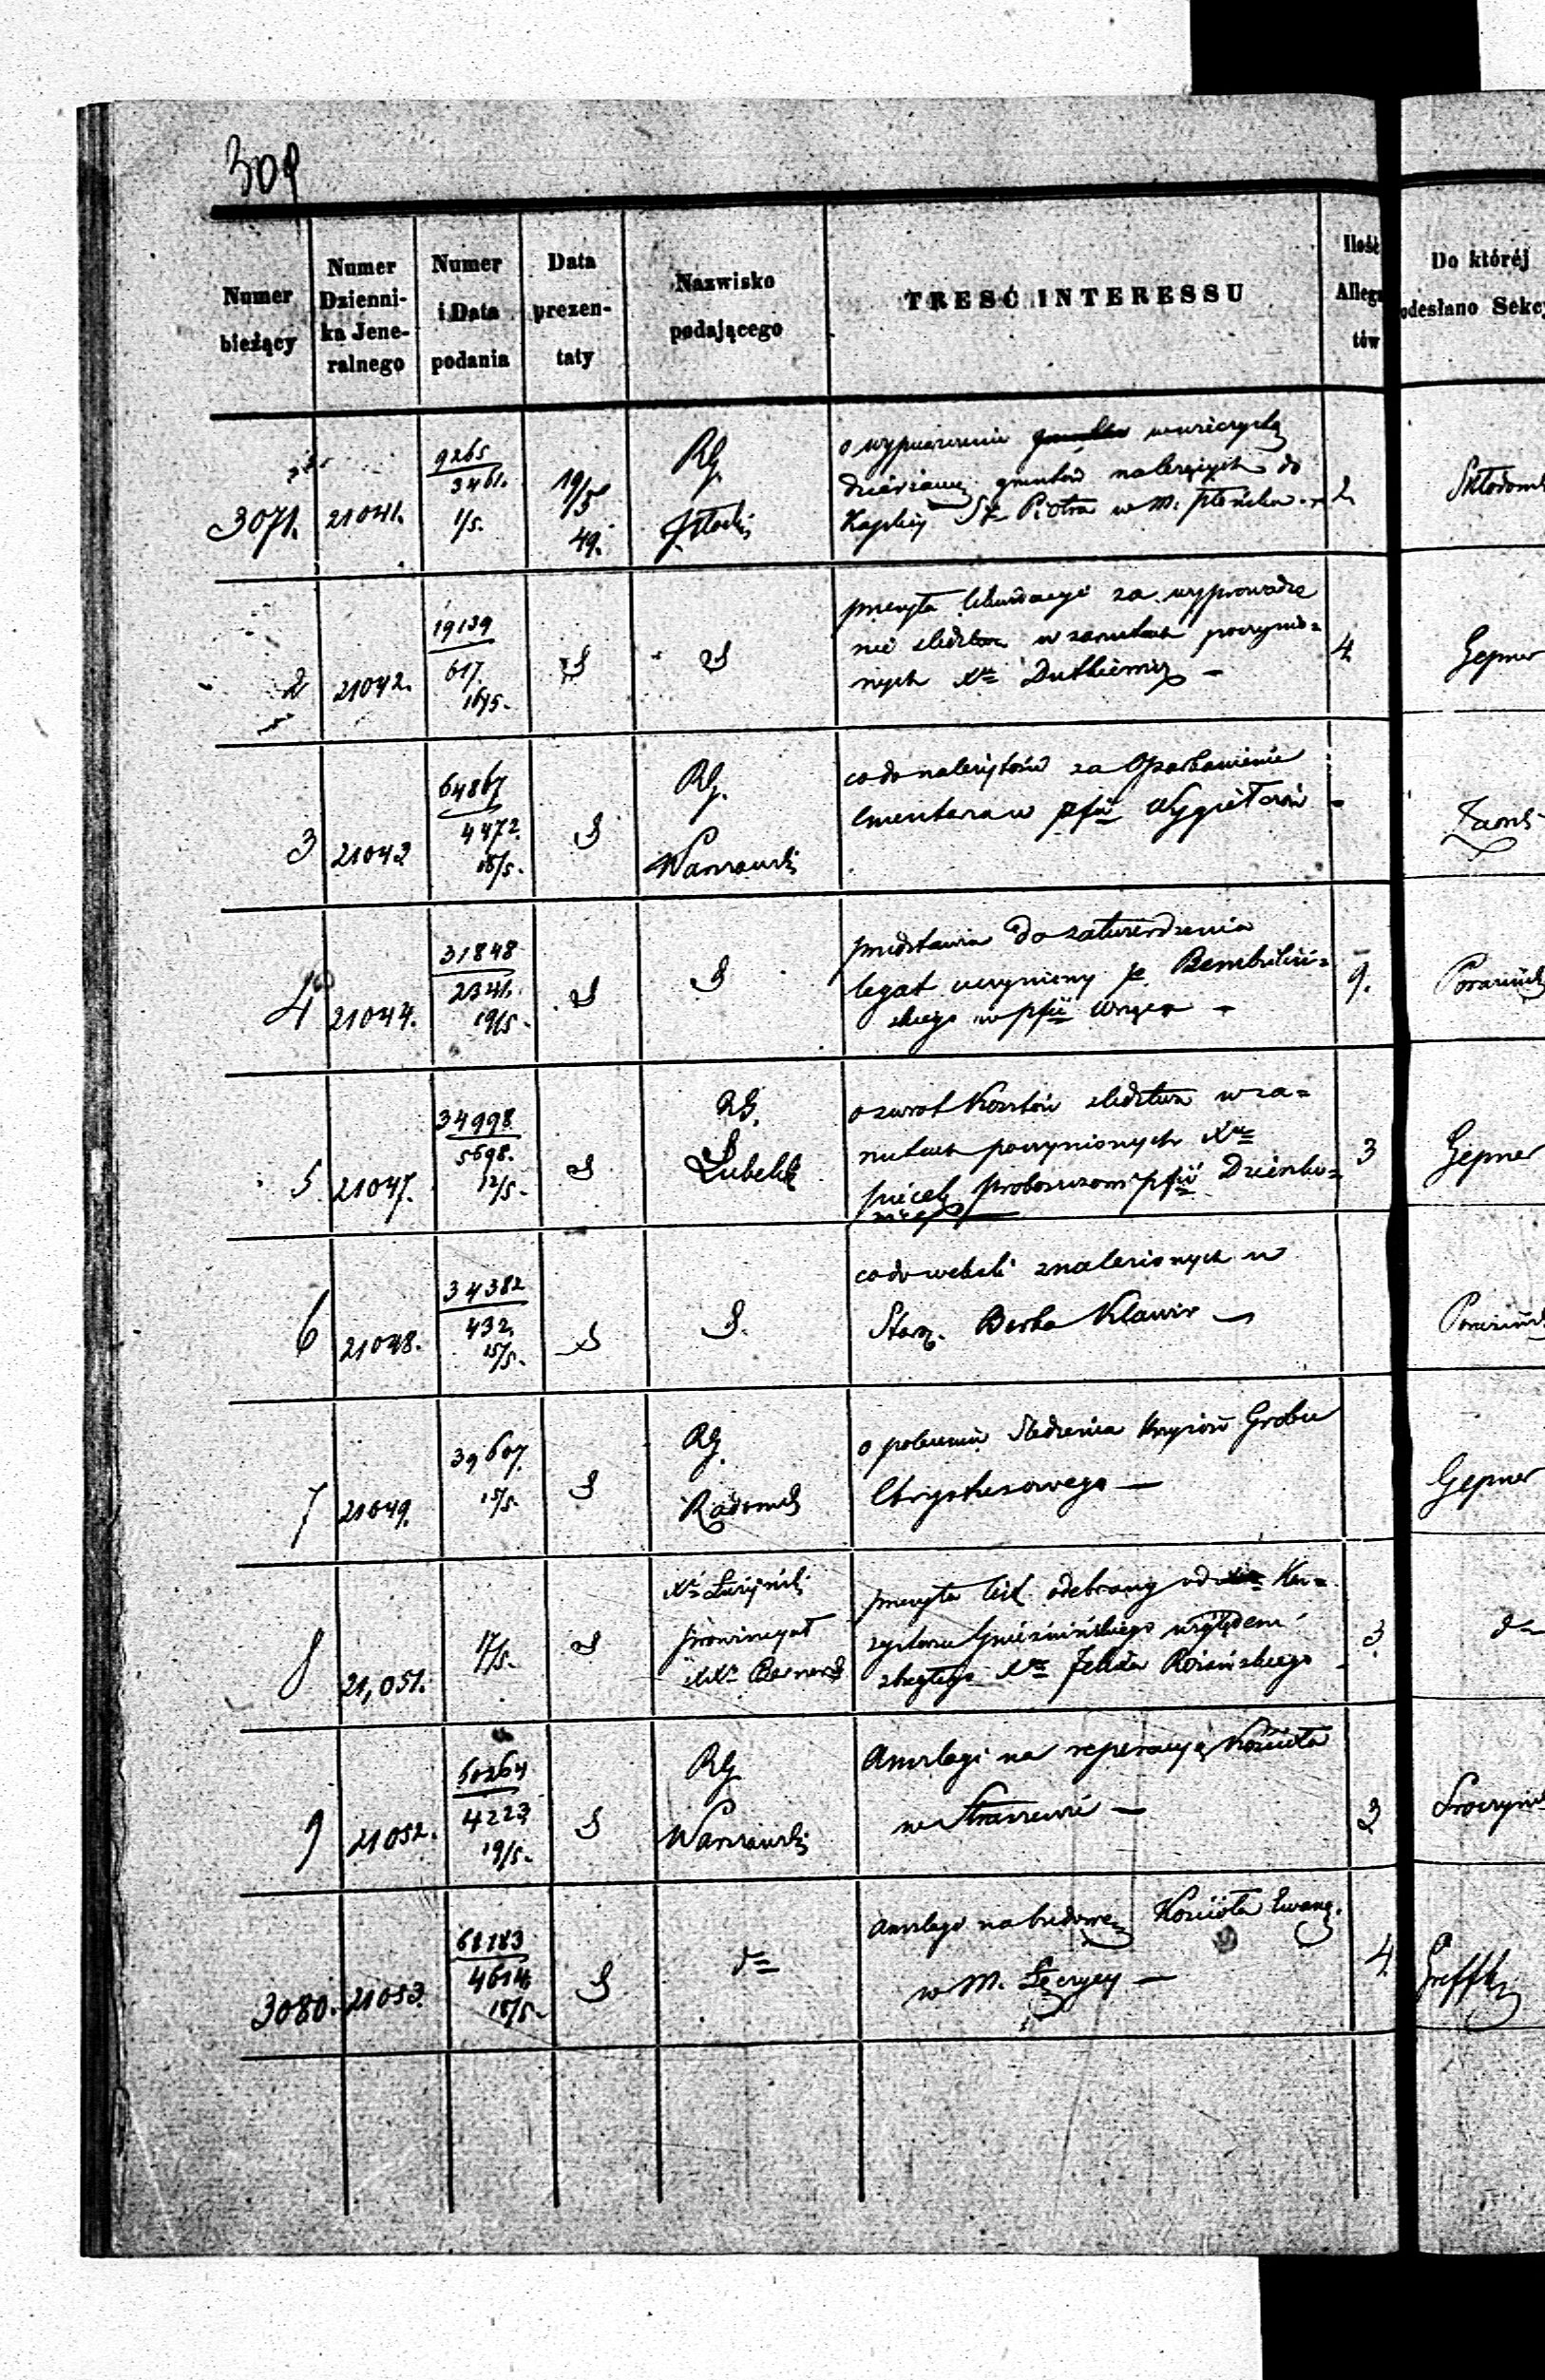 309
Numer bieżący
Numer Dzienni- ka Jene- ralnego
Numer i Data podania
Data prezen- taty
Nazwisko podającego
TRESĆ INTERESSU
Ilość Allega tów
Do któréj odesłano Sekcy
3071. 21041. 9265 3461. 1/5. 19/5 49. RG. Płocki
o wypuszczenie wieczystą
dzierżawę gruntów należących do
Kaplicy Sgo Piotra w M. Płońsku
2 Skłodows
2 21042. 19139 617. 16/5. S S
przesyła likwidacye za wyprowadze
nie śledztwa w zarzutach poczynio=
nych Xdu Dutkiewicz –
4. Gepner
3 21043 64867 4472. 18/5. S RG. Warszawski
co do należytości za Oparkanienie
cmentarza w pfii Wygiełzów –
4 21044. 31848 2341. 19/5. S S
przedstawia do zatwierdzenia
legat uczyniony p.
skiego w pfii Wręcza –
9. Porazińsk
5 21047. 34998. 5698. 12/5. S RG. Lubelski
o zwrot kosztów śledztwa w za=
rzutach poczynionych Xdu
proboszczowi pfii
3 Gepner
6 21048. 34382 432. 15/5. S S.
co do weksli znalezionych u
Starz. Berka Klawir –
Porazińsk
7 21049. 39607. 15/5. S RG. Radomsk
o poleceniu śledzenia Krzyżów Grobu
Chrystusowego –
Gepner
8 21,051. 17/5. S Prowincyał XXo Bernard
przesyła list odebrany od Kon=
systorza Gnieźnińskiego względem
zbiegłego Xdza Felixa Rosińskiego
3. do
9 21052. 60264 4223 19/5. S RG Warszawski
Anszlagi na reperacyą Kościoła
w Straszewie –
3
3080. 21053. 68183 4614 18/5. S do
Anszlagi na budowę Kościoła Ewang.
w M. Łęczycy –
4.